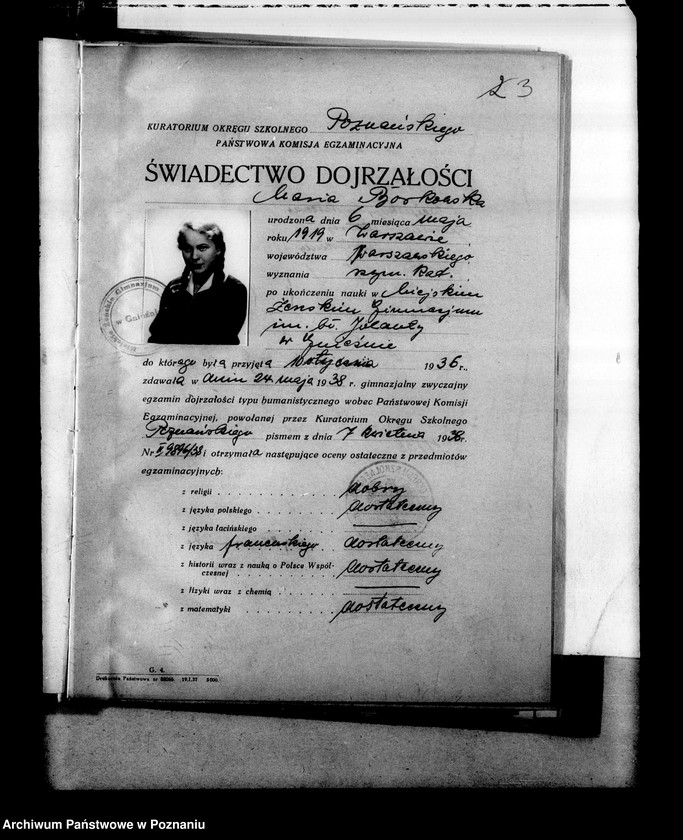 23
KURATORIUM OKRĘGU SZKOLNEGO Poznańskiego
PAŃSTWOWA KOMISJA EGZAMINACYJNA
ŚWIADECTWO DOJRZAŁOŚCI
Maria Borkowska
urodzona dnia 6 miesiąca maja
roku 1919 w Warszawie
województwa Warszawskiego
wyznania rzym. kat.
po ukończeniu nauki w Miejskim
Żeńskim Gimnazjum
im. bł. Jolanty
w Gnieźnie
do którego była przyjęta w styczniu 1936 r.,
zdawała w dniu 24 maja 1938 r. gimnazjalny zwyczajny
egzamin dojrzałości typu humanistycznego wobec Państwowej Komisji
Egzaminacyjnej, powołanej przez Kuratorium Okręgu Szkolnego
Poznańskiego pismem z dnia 7 kwietnia 1938 r.
Nr II 9896/38 i otrzymała następujące oceny ostateczne z przedmiotów
egzaminacyjnych:
z religii dobry
z języka polskiego dostateczny
z języka łacińskiego
z języka francuskiego dostateczny
z historii wraz z nauką o Polsce Współ-
czesnej dostateczny
z fizyki wraz z chemią
z matematyki dostateczny
G. 4.
Drukarnia Państwowa nr 19.I.37
Archiwum Państwowe w Poznaniu